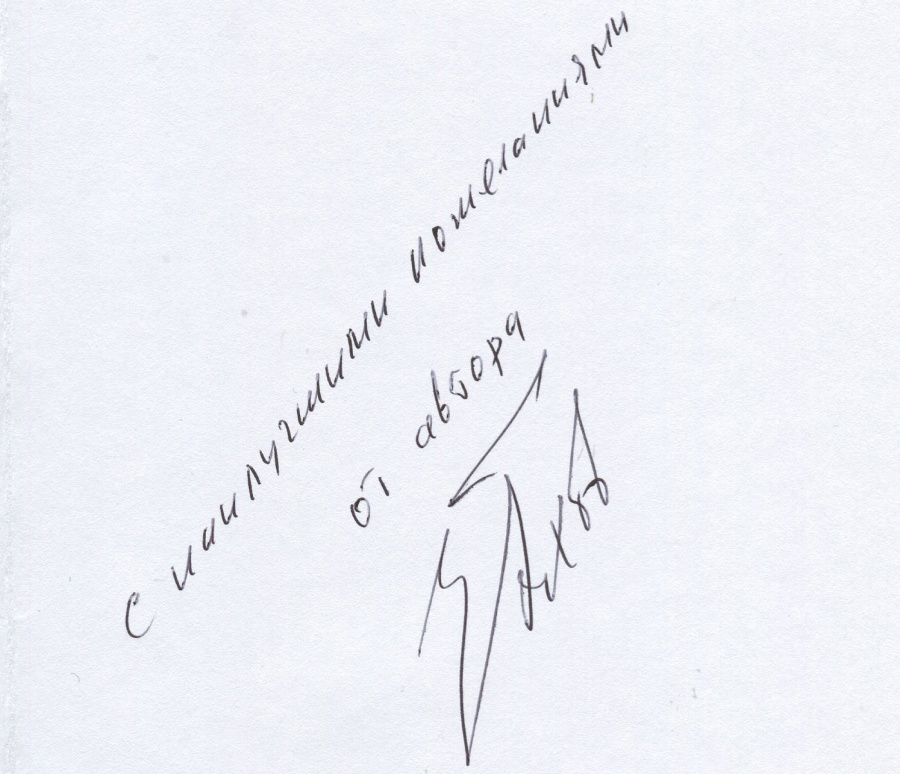 с наилучшими пожеланиями
от автора